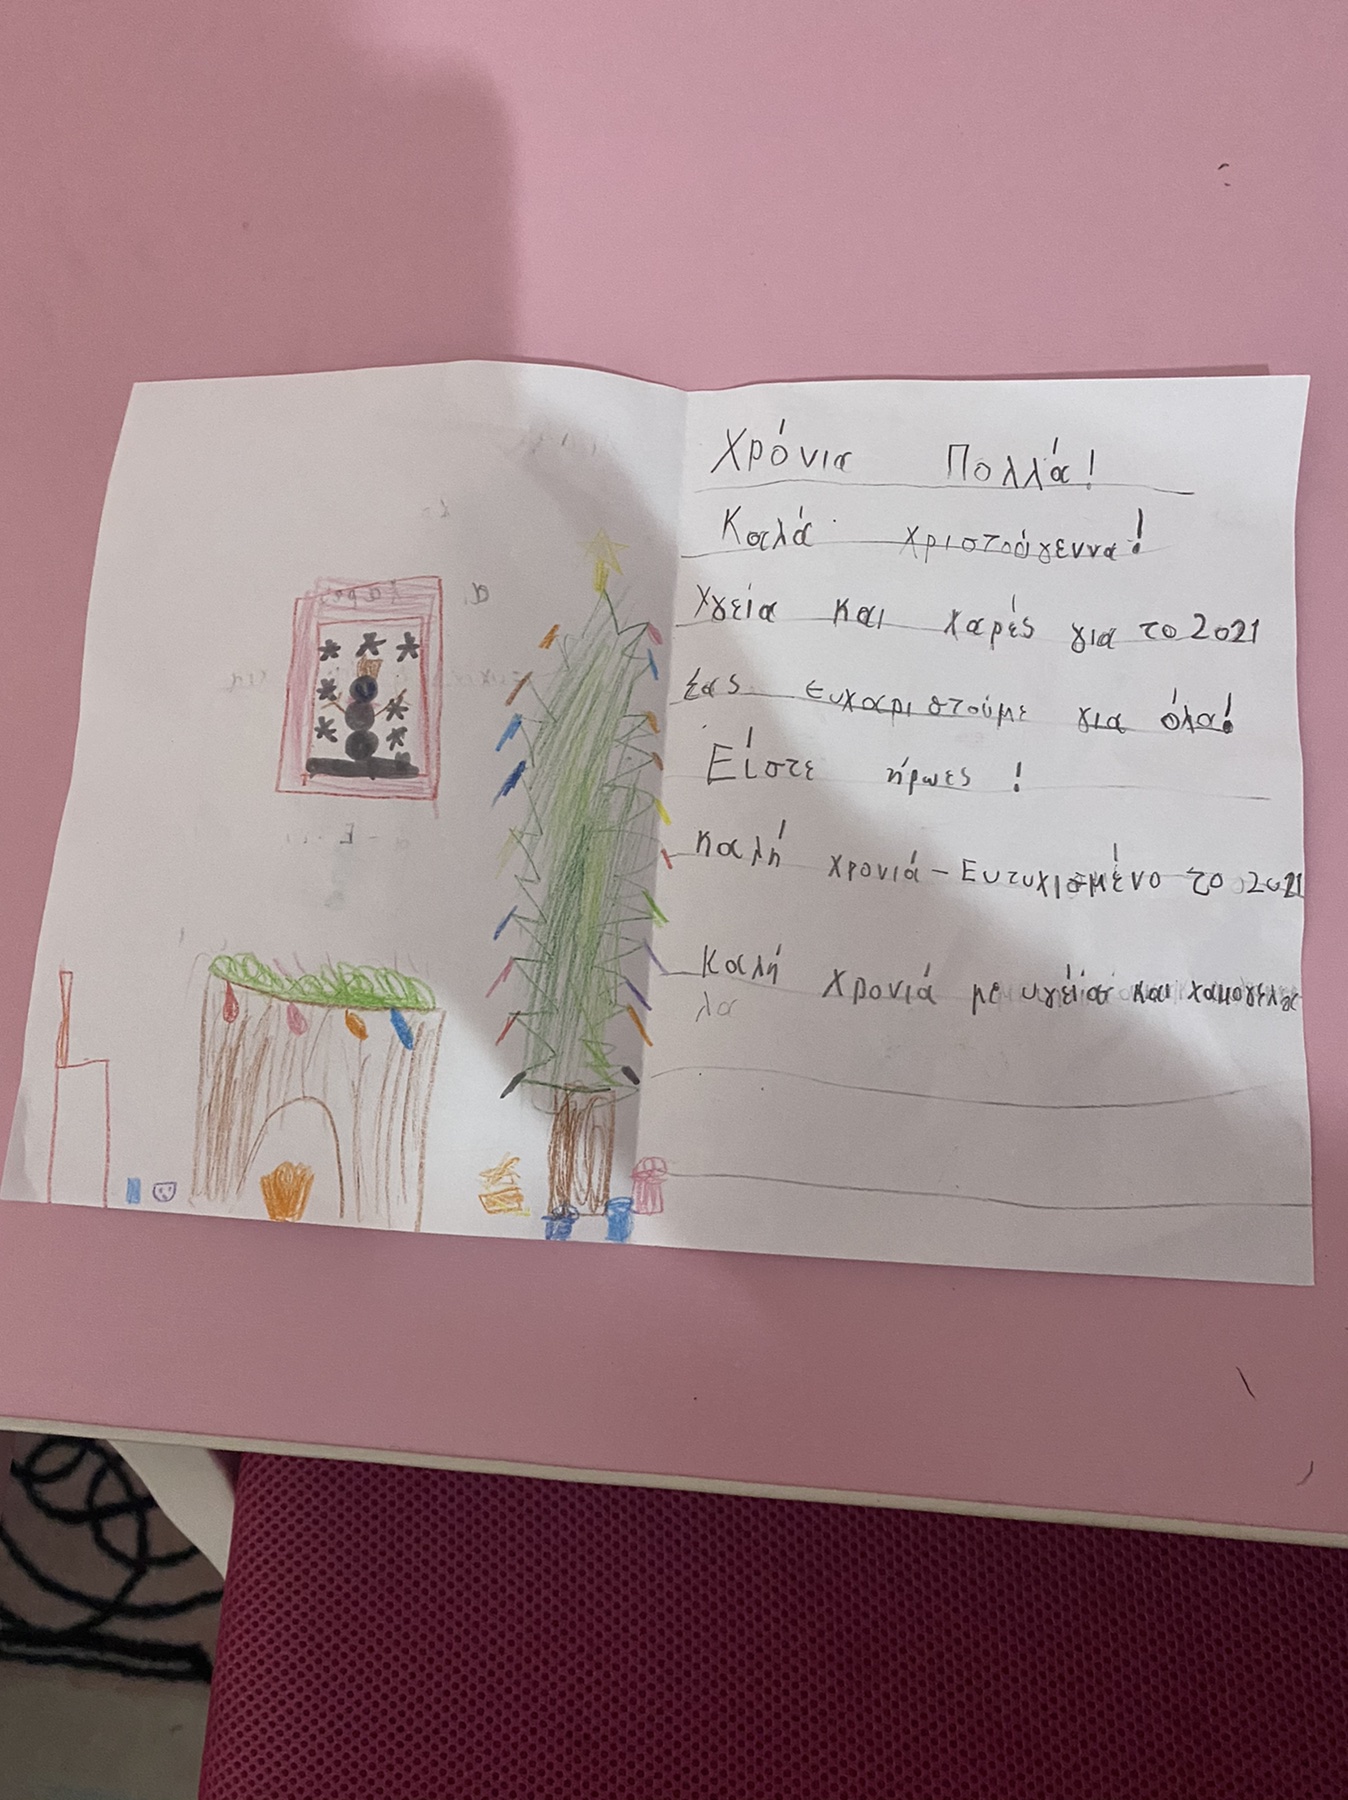 Χρόνια Πολλά!
Καλά Χριστούγεννα!
Υγεία και χαρές για το 2021
Σας ευχαριστούμε για όλα!
Είστε ήρωες!
Καλή χρονιά - Ευτυχισμένο το 2021
Καλή χρονιά με υγεία και χαμογελα
λα